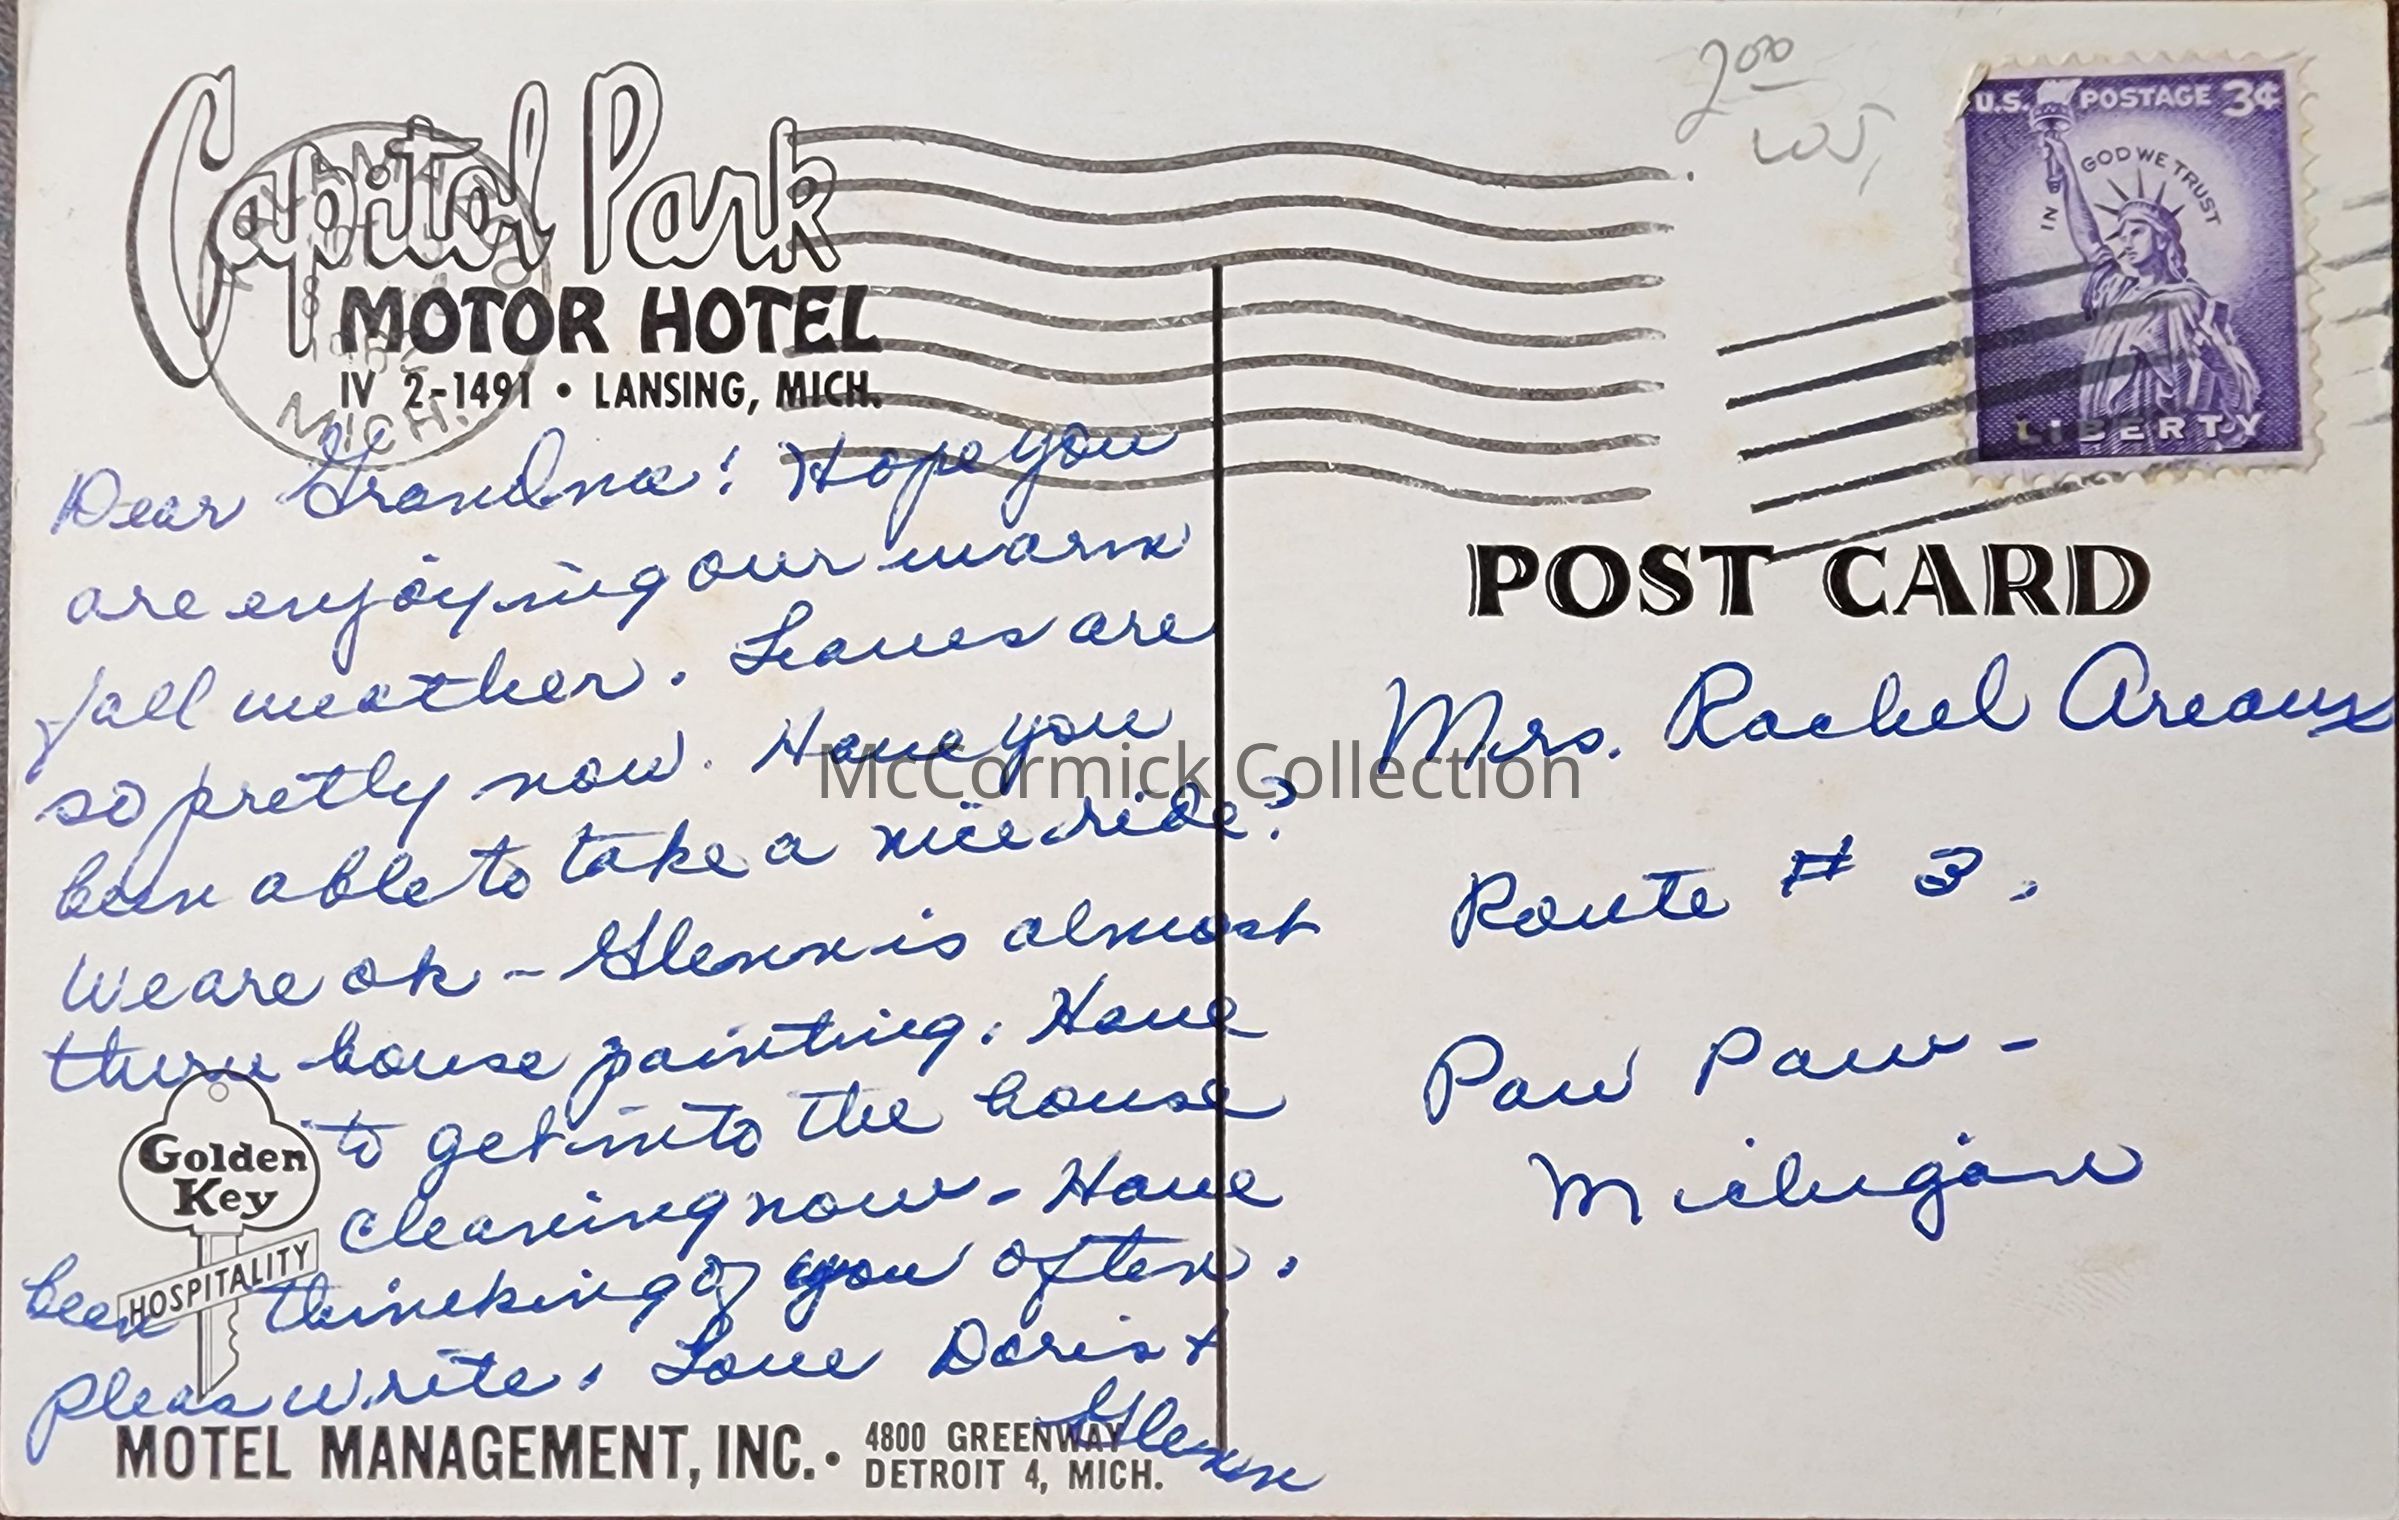 Capitol Park
MOTOR HOTEL
IV 2-1491 • LANSING, MICH.
MICH.
2.00
U.S. POSTAGE 3¢
IN GOD WE TRUST
LIBERTY
POST CARD
Dear Grandma! Hope you
are enjoying our warm
fall weather. Leaves are
so pretty now. Have you
been able to take a nice ride?
We are ok - Glenn is almost
thru house painting. Have
to get into the house
cleaning now - Have
been thinking of you often.
Pleas write. Love Doris &
Glenn
Golden
Key
HOSPITALITY
MOTEL MANAGEMENT, INC. • 4800 GREENWAY
DETROIT 4, MICH.
Mrs. Rachel Areaux
Route # 3.
Paw Paw -
Michigan
McCormick Collection